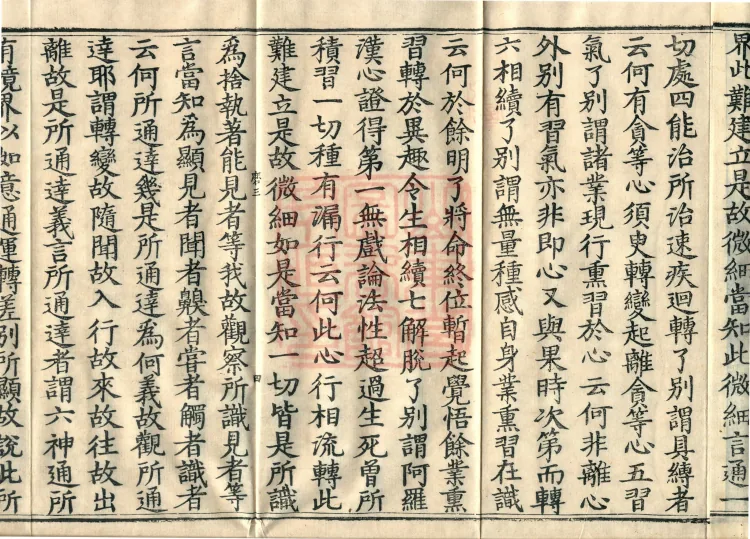 界此難建立是故微細當知此微細言通一
切處四能治所治速疾迴轉了別謂具縛者
云何有貪等心須臾轉變起離貪等心五習
氣了別謂諸業現行熏習於心云何非離心
外別有習氣亦非即心又與果時次第而轉
六相續了別謂無量種感自身業熏習在識
云何於餘明了將命終位暫起覺悟餘業熏
習轉於異趣令生相續七解脫了別謂阿羅
漢心證得第一無戲論法性超過生死曾所
積習一切種有漏行云何此心行相流轉此
難建立是故微細如是當知一切皆是所識
四
為捨執著能見者等我故觀察所識見者等
言當知為顯見者聞者齅者甞者觸者識者
云何所通達幾是所通達為何義故觀所通
達耶謂轉變故隨聞故入行故來故往故出
離故是所通達義言所通達者謂六神通所
有境界以如意通運轉差別所顯故說此所